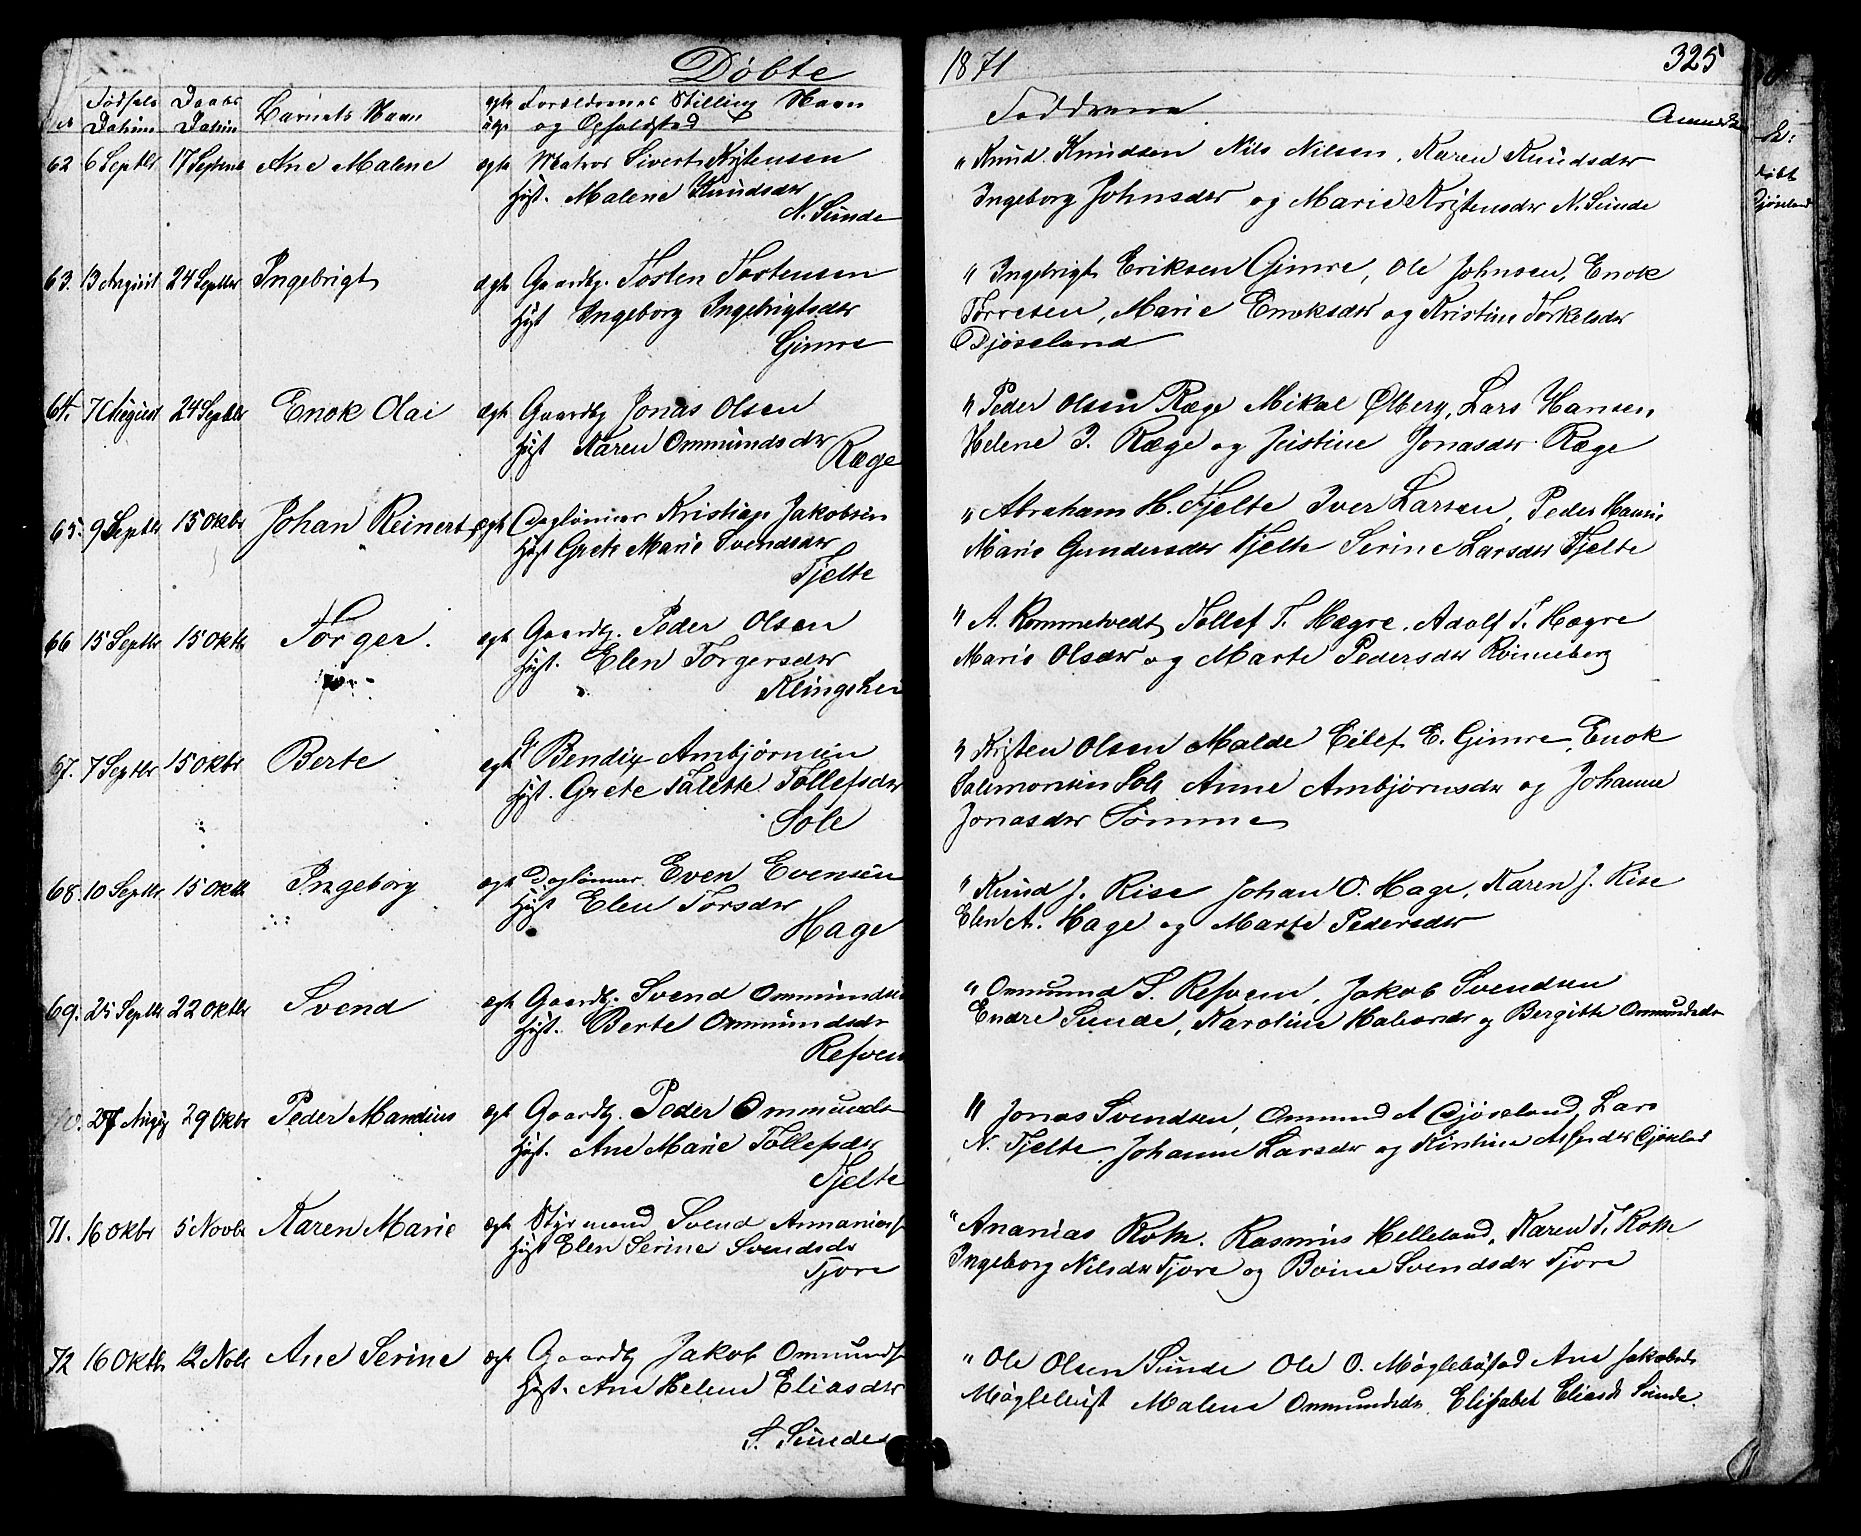 Döbte 1871 325
No Fødsels Datum Daabs Datum Barnets Navn ægte uægte Forældrenes Stilling Navn og Opholdsted Faddrene Anmerk
62 6 Septbr 17 Septemb Ane Malene ægte Matros Sivert Kristensen
Hust. Malene Knudsdtr
N. Sunde
" Knud Knudsen Nils Nilsen, Karen Knudsdtr
Ingeborg Johnsdtr og Marie Kristensdtr N. Sunde
63. 13 August 24 Septbr Ingebrigt ægte Gaardbr. Tosten Tostensen
Hust Ingeborg Ingebrigtsdtr
Gimre
" Ingebrigt Eriksen Gimre, Ole Johnsen, Enok
Torresen, Marie Enoksdtr og Kristine Torkelsdtr
Djöseland
64. 7 August 24 Septbr Enok Olai ægte Gaardbr Jonas Olsen
Hust Karen Ommundsdtr
Ræge
" Peder Olsen Ræge Mikal Ølberg, Lars Hansen,
Helene J. Ræge og Justine Jonasdtr Ræge
65. 9 Septbr 15 Okbr Johan Reinert ægte Daglönner Kristian Jakobsen
Hust Grete Marie Svendsdtr
Tjelte
" Abraham H. Tjelte Iver Larsen, Peder Hansen
Marie Gundersdtr Tjelte Serine Larsdtr Tjelte
66 15 Septbr 15 Oktbr Torger. ægte Gaardbr. Peder Olsen
Hust. Elen Torgersdtr
Klingshei
" A. Rommetvedt, Tollef T. Hægre, Adolf T. Hægre
Marie Olsdtr og Marte Pedersdtr Rönneberg
67. 7 Septbr 15 Oktbr Berte ægte G. Bendix Ambjörnsen
Hust. Grete Talette Tollefsdtr
Sole
" Kristen Olsen Malde Eilef E. Gimre, Enok
Salemonsen Sole Anne Ambjörnsdtr og Johanne
Jonasdtr Sömme
68. 10 Septbr 15 Oktb Ingeborg ægte Daglönner Even Evensen
Hust Elen Torsdtr
Hage
" Knud J. Rise Johan O. Hage, Karen J. Rise
Elen A. Hage og Marte Pedersdtr
69. 25 Septbr 22 Oktbr Svend ægte Gaardbr. Svend Ommundsen
Hust. Berte Ommundsdr
Refven
" Ommund S. Refvem, Jakob Svendsen
Endre Sunde, Karoline Halvordr og Bergitte Ommundsdr
70. 27 Aug 29 Okbr Peder Mandius ægte Gaardbr. Peder Ommunds
Hust. Ane Marie Tollefsdtr
Tjelte
" Jonas Svendsen, Ommund A Djöseland, Lars
N. Tjelte, Johanne Larsdtr og Kirstine dtr Djöseland
71. 16 Okbr 5 Novbr Karen Marie ægte Styrmand Svend Annaniass
Hust Elen Serine Svendsdr
Tjore
" Ananias Roth. Rasmus Helleland, Karen T. Roth
Ingeborg Nilsdtr Tjore og Boine Svendsdtr Tjore
72 16 Oktb 12 Nobr Ane Serine ægte Gaardbr Jakob Ommunds
Hust. Ane Helene Eliasdtr
S. Sunde
" Ole Olsen Sunde Ole O. Möglebustad Ane Jakobsdr
Möglebust Malene Ommundsdr Elisabet Eliasd Sunde.